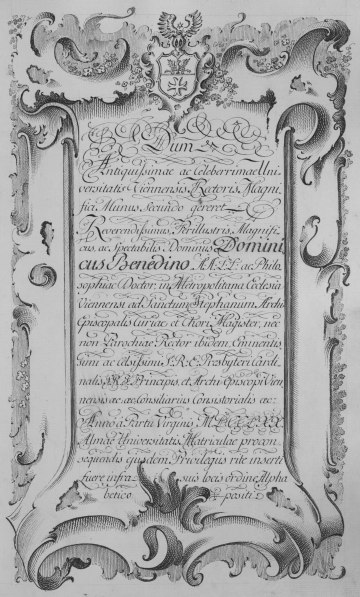 Dum
Antiquissimae ac Celeberrimae Uni
versitatis Viennensis Rectoris Magni
fici Munus Secundo gereret
Reverendissimus, Perillustris, Magnifi
cus, ac Spectabilis Dominus Domini
cus Benedino AA. LL. ac Philo
sophiae Doctor, in Metropolitana Ecclesia
Viennensi ad Sanctum Stephanum, Archi
Episcopalis Curiae et Chori Magister, nec
non Parochiae Rector ibidem, Eminentis
simi ac celsissimi S. R. E. Presbyteri Cardi
nalis, S. R. I. Principis, et Archi Episcopi Vien
nensis ac Consiliarius Consistorialis ac:
Anno à Partu Virginis
Almae Universitatis Matriculae pro con
sequendis ejusdem Privilegiis rite inserti
fuere infra suis locis ordine Alpha
betico positi